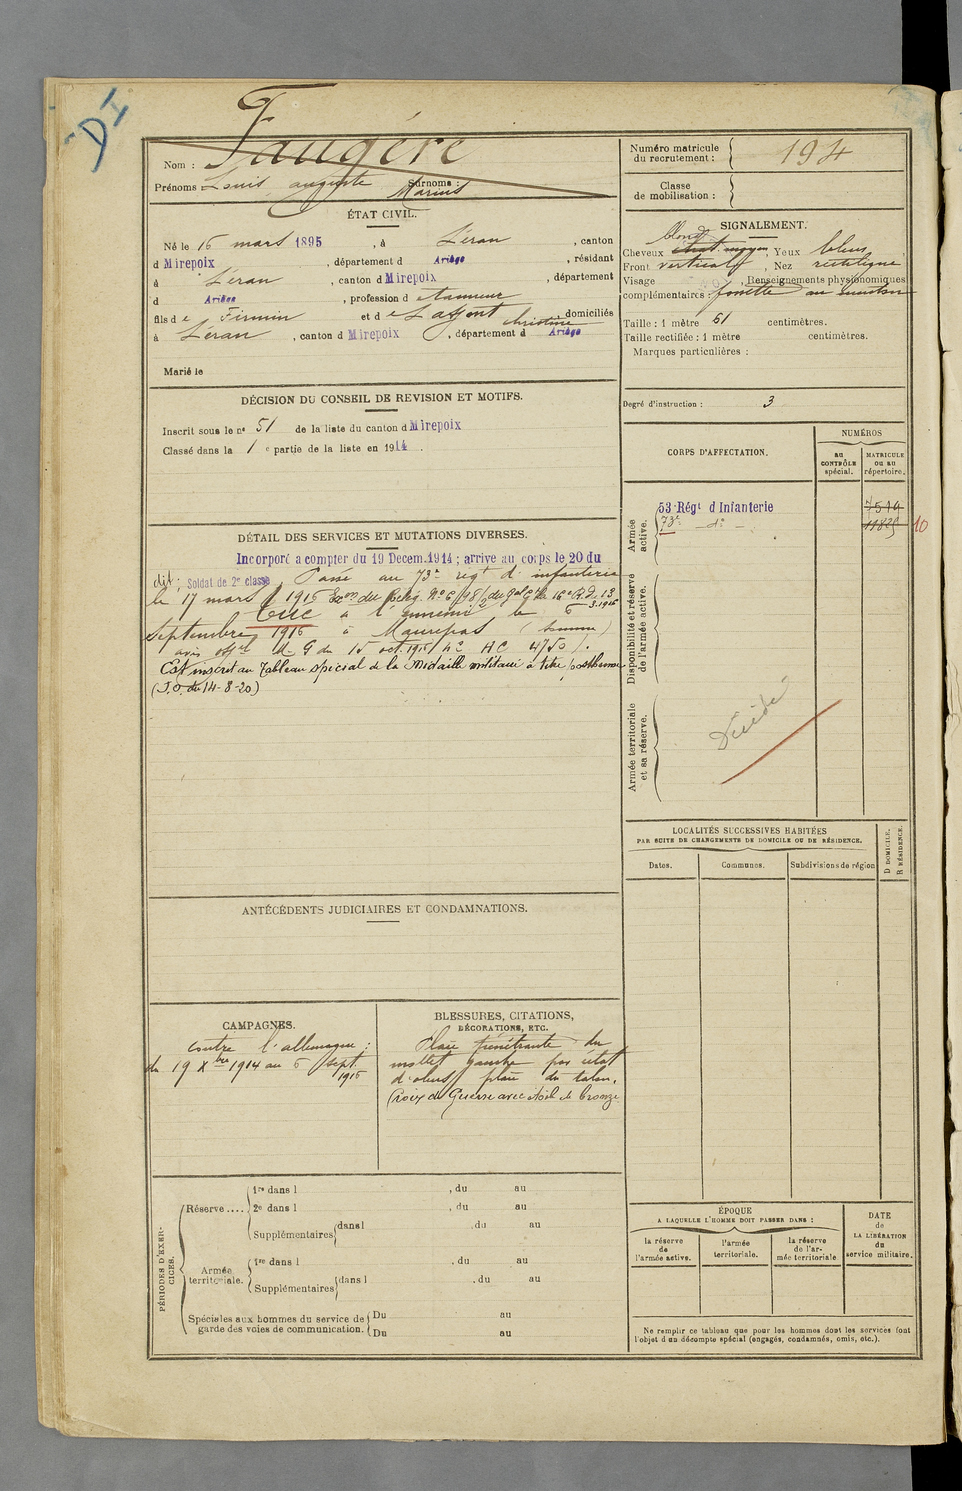 DI
Nom : Faugère
Prénoms Louis auguste Marius Surnoms :
Numéro matricule du recrutement : 194
Classe de mobilisation :
ÉTAT CIVIL.
Né le 16 mars 1895, à Léran, canton
d Mirepoix, département d Ariège, résidant
à Léran, canton d Mirepoix, département
d Ariège, profession d tanneur
fils de Firmin et de Laffont Christine domiciliés
à Léran, canton d Mirepoix, département d Ariège
Marié le
SIGNALEMENT.
blond
Cheveux chat. moyen, Yeux bleus
Front vertical, Nez rectiligne
Visage , Renseignements physionomiques
complémentaires : fossette au menton
Taille : 1 mètre 61 centimètres.
Taille rectifiée : 1 mètre centimètres.
Marques particulières :
Degré d'instruction : 3
DÉCISION DU CONSEIL DE REVISION ET MOTIFS.
Inscrit sous le n° 51 de la liste du canton d Mirepoix
Classé dans la 1 e partie de la liste en 1914.
CORPS D'AFFECTATION.
NUMÉROS
AU CONTRÔLE spécial.
MATRICULE OU AU répertoire.
Armée active.
53 Régt d Infanterie 7519
73e d° 11825 10
Disponibilité et réserve de l'armée active.
Armée territoriale et sa réserve.
Décédé
DÉTAIL DES SERVICES ET MUTATIONS DIVERSES.
Incorporé a compter du 19 Decem. 1914 ; arrive au corps le 20 du
dit ; Soldat de 2e classe Passé au 73e régt d'infanterie
le 17 mars 1916
Tué à l'ennemi le 6
Septembre 1916 à Maurepas (Somme)
avis offel
Est inscrit au Tableau spécial de la Médaille militaire à titre posthume
(J.O. du 14-8-20)
ANTÉCÉDENTS JUDICIAIRES ET CONDAMNATIONS.
LOCALITÉS SUCCESSIVES HABITÉES
PAR SUITE DE CHANGEMENTS DE DOMICILE OU DE RÉSIDENCE.
Dates.
Communes.
Subdivisions de région
D DOMICILE.
R RÉSIDENCE.
CAMPAGNES.
contre l'allemagne :
du 19 Xbre 1914 au 6 sept.
1916
BLESSURES, CITATIONS,
DÉCORATIONS, ETC.
Plaie pénétrante du
mollet gauche par éclat
d'obus, plaie du talon.
Croix de Guerre avec étoile de bronze
PÉRIODES D'EXERCICES.
Réserve ....
1re dans l , du au
2e dans l , du au
Supplémentaires dans l , du au
Armée territoriale.
1re dans l , du au
Supplémentaires dans l , du au
Spéciales aux hommes du service de garde des voies de communication.
Du au
Du au
ÉPOQUE
A LAQUELLE L'HOMME DOIT PASSER DANS :
la réserve de l'armée active.
l'armée territoriale.
la réserve de l'armée territoriale
DATE de LA LIBÉRATION du service militaire.
Ne remplir ce tableau que pour les hommes dont les services font
l'objet d'un décompte spécial (engagés, condamnés, omis, etc.).